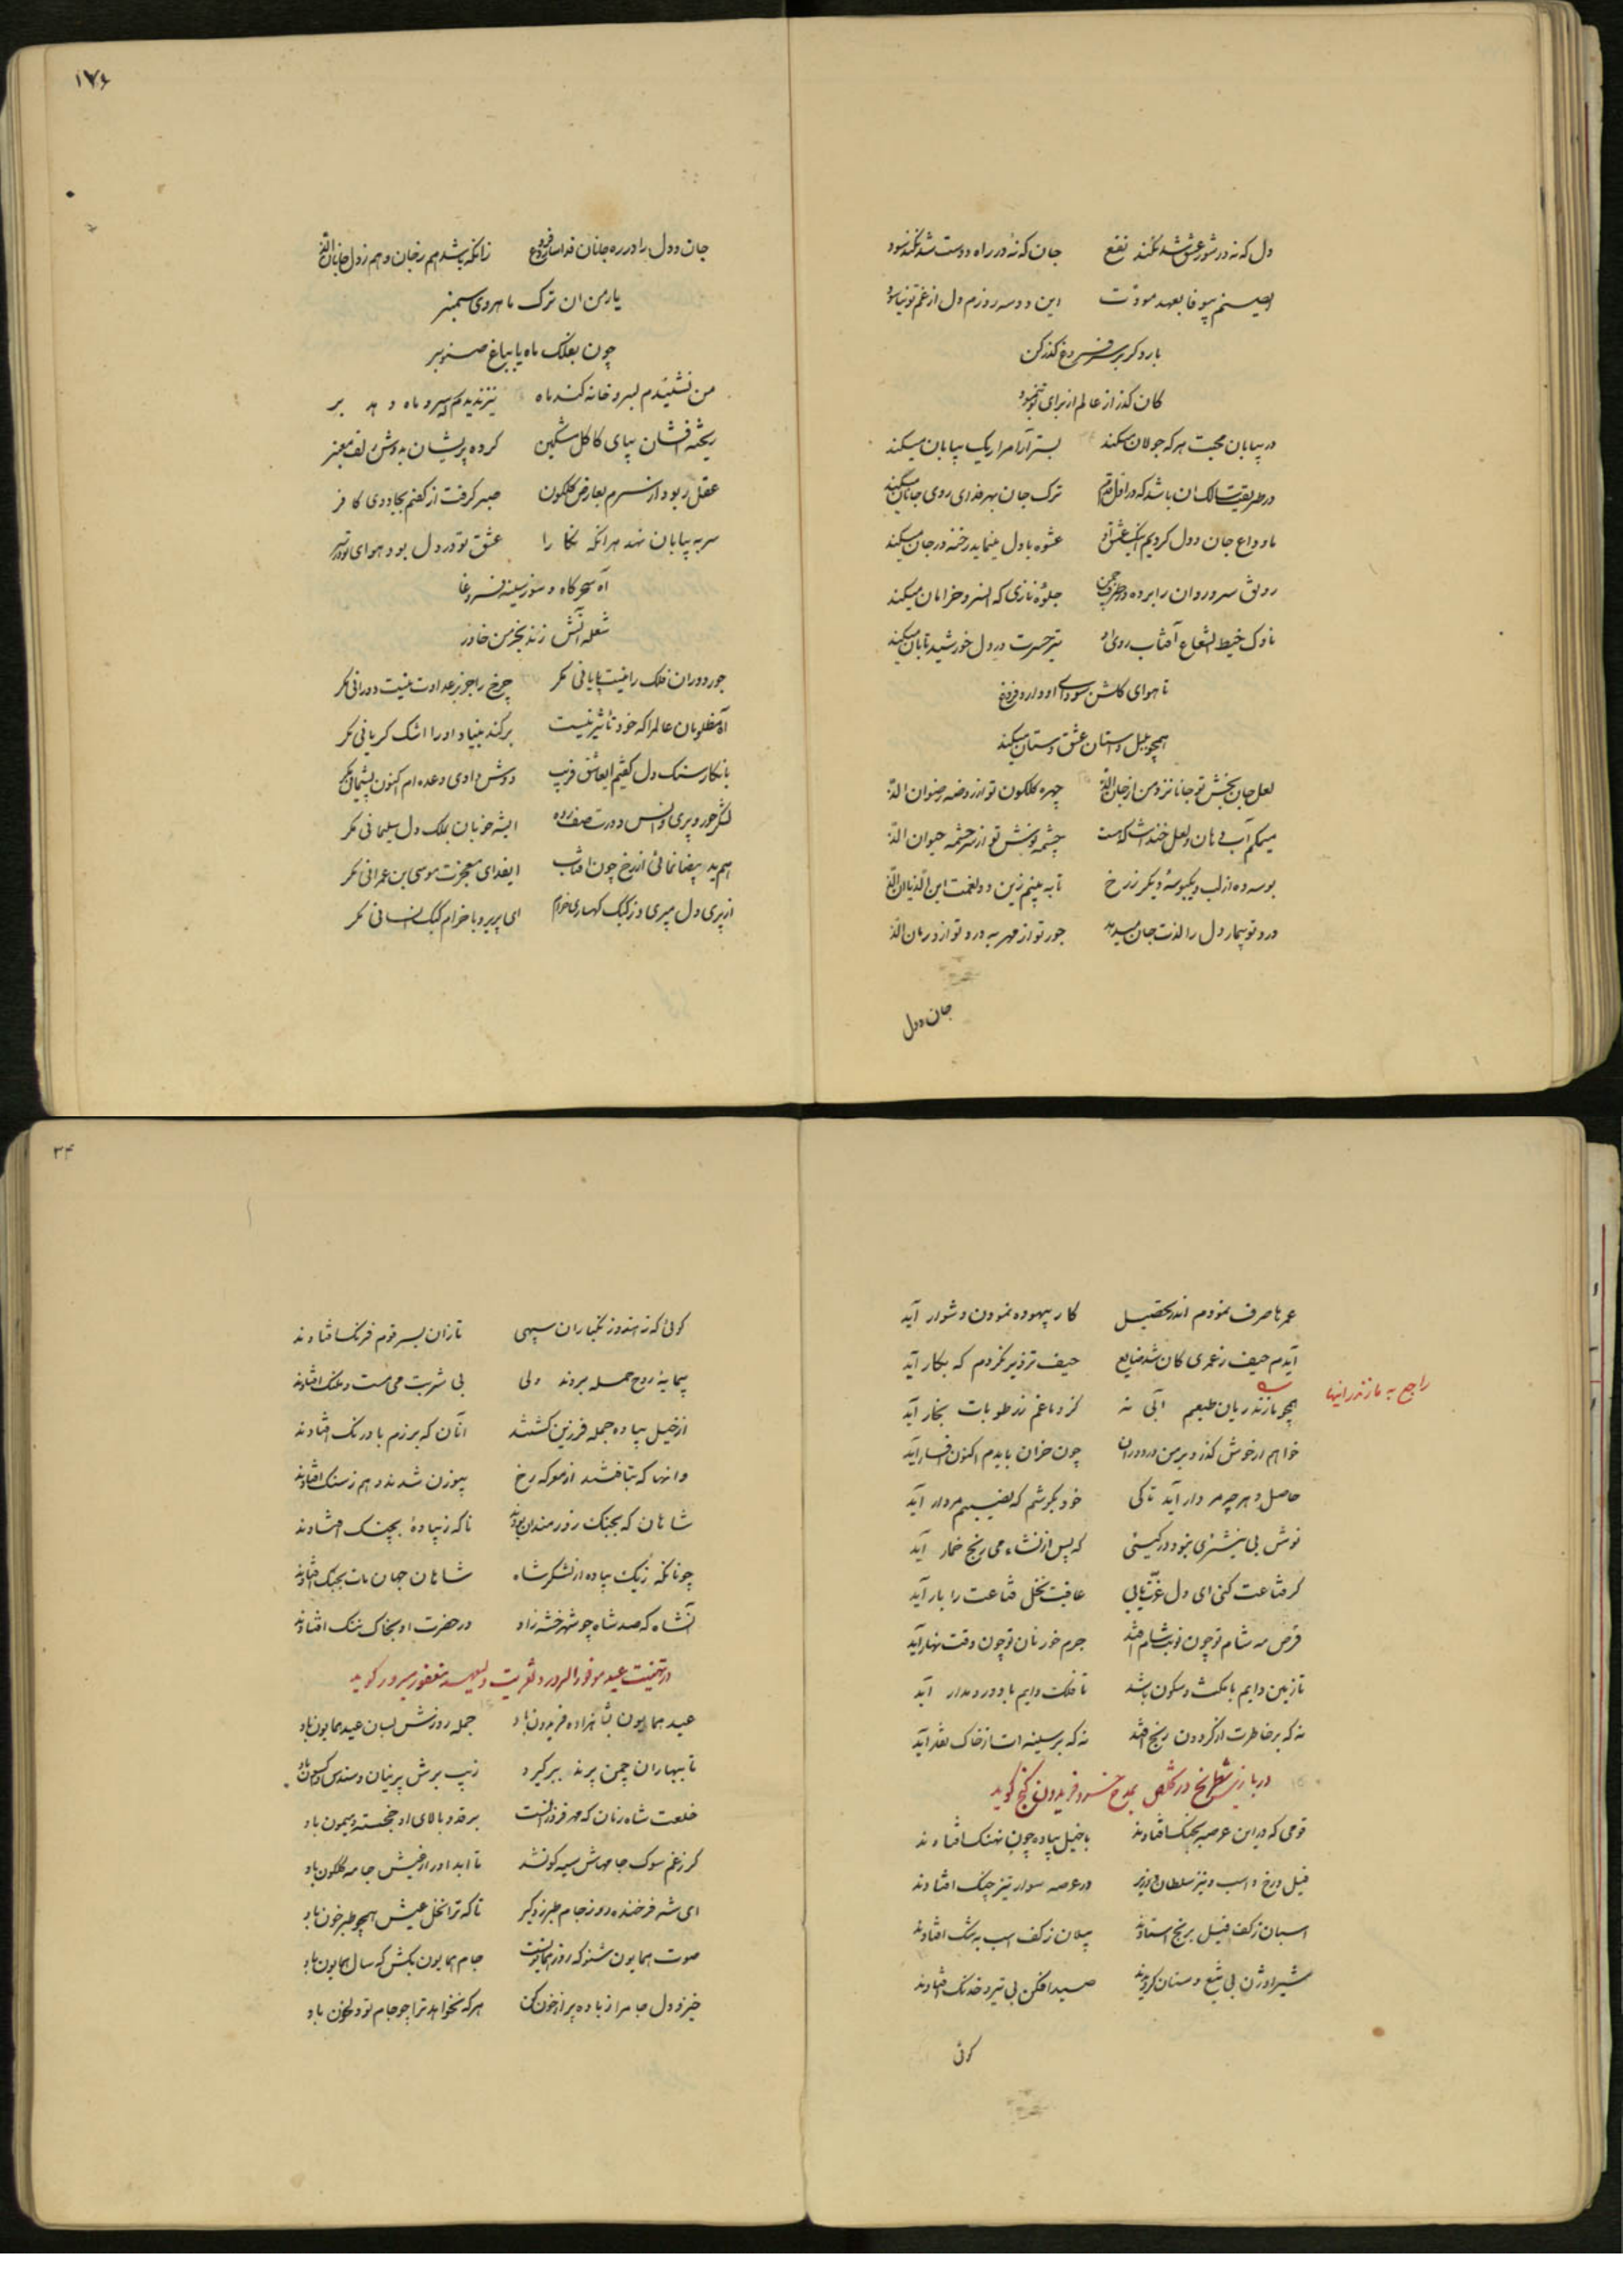 دل که نه در شور عشق شد نکند نفع جان که نه در راه دوست شد نکند سود
ای صنم بیوفا بعهد مودت این دو سه روزم دل از غم تو نیاسود
بار دگر بر سر فروغ گذر کن
کان گذر از عالم از برای تو بنمود
در بیابان محبت هر که جولان میکند بستر آرام را ریک بیابان میکند
در طریقت سالک آن باشد که در اول قدم ترک جان بهر فدای روی جانان میکند
ما وداع جان و دل کردیم عشق او عشوه با دل مینماید رخنه در جان میکند
رونق سرو روان را برده در طرف چمن جلوه نازی که آن سرو خرامان میکند
ناوک خیط الشعاع آفتاب روی او تیر حسرت در دل خورشید تابان میکند
تا هوای گلشن سودای او دارد فروغ
همچو بلبل داستان عشق دستان میکند
لعل جان بخش تو جانا نزد من از جان الذ چهره گلگون تو از روضه رضوان الذ
میمکم آب دهان و لعل خندانت که هست چشمه نوش تو از سرچشمه حیوان الذ
بوسه ده از لب و یکبوسه دیگر ز رخ تا به بینم زین دو نعمت این الذ یا آن الذ
درد تو بیمار دل را لذت جان میدهد جور تو از مهر به درد تو از درمان الذ
جان و دل
۱۷۶
جان و دل را در ره جانان فدا ساز ای فروغ زانکه باشد هم ز جان و هم ز دل جانان الذ
یار من آن ترک ماهروی سمنبر
چون بفلک ماه یا بباغ صنوبر
من نشنیدم بسرو خانه کند ماه نیز ندیدم که سرو ماه دهد بر
ریخته افشان بپای کاکل مشکین کرده پریشان بدوش زلف معنبر
عقل ربود از سرم بعارض گلگون صبر گرفت از کفم بجادوی کافر
سر به بیابان نهد هر آنکه نگارا عشق تو در دل بود هوای تو در سر
آه سحرگاه و سوز سینه فروغا
شعله آتش زند بخرمن خاور
جور دوران فلک را نیست پایانی مگر چرخ را جز بر عداوت نیست دورانی مگر
آه مظلومان عالم را که خود تأثیر نیست برکند بنیاد او را اشک گریانی مگر
با نگار سنگ دل گفتم ایعاشق فریب دوش دادی وعده ام اکنون پشیمانی مگر
لشکر حور و پری و انس و دورت صف زده ایشه خوبان بملک دل سلیمانی مگر
هم ید بیضا نمائی از رخ چون آفتاب ایفدای معجزت موسی بن عمرانی مگر
از پری دل میبری وز کبک کهساری خرام ای پریرو با خرام کبک انسانی مگر
عمرها صرف نمودم اندر تحصیل کار بیهوده نمودن دشوار آید
آیدم حیف ز عمری کان شد ضایع حیف تزویر نکردم که بکار آید
همچو مازندریان طبعم آبی نه کز دماغم ز رطوبات بخار آید
راجع به مازندرانیها
خواهم ار خوش گذرد بر من در دوران چون خران بایدم اکنون افسار آید
حاصل دهر چو مردار آید تا کی خود بکوشم که نصیبم مردار آید
نوش بی نیشتری نبود در گیتی که پس از نشاء می رنج خمار آید
گر قناعت کنی ای دل عزت یابی عاقبت نخل قناعت را بار آید
قرص مه شام تو چون نوبت شام افتد جرم خور نان تو چون وقت نهار آید
تا زمین دایم با مکث و سکون باشد تا فلک دایم با دور و مدار آید
نه که بر خاطرت از گردون رنج افتد نه که بر سینه ات از خاک غبار آید
در بازی شطرنج در تخلص بمدح خسرو فریدون گنج گوید
قومی که در این عرصه بجنگ افتادند با خیل پیاده چون نهنگ افتادند
فیل و رخ و اسب و نیز سلطان و وزیر در عرصه سوار تیز چنگ افتادند
اسبان ز کف فیل برنج استادند پیلان ز کف اسب به تنگ افتادند
شیر اوژن بی تیغ و سنان گردیدند صید افکن بی تیر و خدنگ افتادند
گوئی
۳۴
گوئی که ز هند و زنگباران سپهی تازان بسر قوم فرنگ افتادند
پیمایه روح حمله بردند ولی بی شربت می مست و ملنگ افتادند
از خیل پیاده جمله فرزین گشتند آنان که برزم با درنگ افتادند
وانها که بتافتند از معرکه رخ بیوزن شدند و هم ز سنگ افتادند
شاهان که بجنگ زورمندان بودند ناگه ز پیاده بچنگ افتادند
چونانکه ز یک پیاده از لشکر شاه شاهان جهان مات بجنگ افتادند
آنشاه که صد شاه چو شهرخش زاد در حضرت او بخاک ننگ افتادند
در تهنیت عید موفور السرور و تعزیت ولیعهد مغفور مبرور گوید
عید همایون بشاهزاده فریدون باد جمله روزش بسان عید همایون باد
تا ببهاران چمن پرند ببر گیرد زیب برش پرنیان و سندس و اکسون باد
خلعت شاه زمان که مهر فروزانست بر قد و بالای او خجسته و میمون باد
گر ز غم سوک جامهاش سیه گونشد تا ابد او را ز عیش جامه گلگون باد
ای شه فرخنده روز جام طبرزد گیر تا که ترا نخل عیش همچو طبرخون باد
صوت همایون شنو که روز همایونست جام همایون بکش که سال همایون باد
خیز و دل جام را ز باده پر از خون کن هر که نخواهد ترا چو جام تو دلخون باد